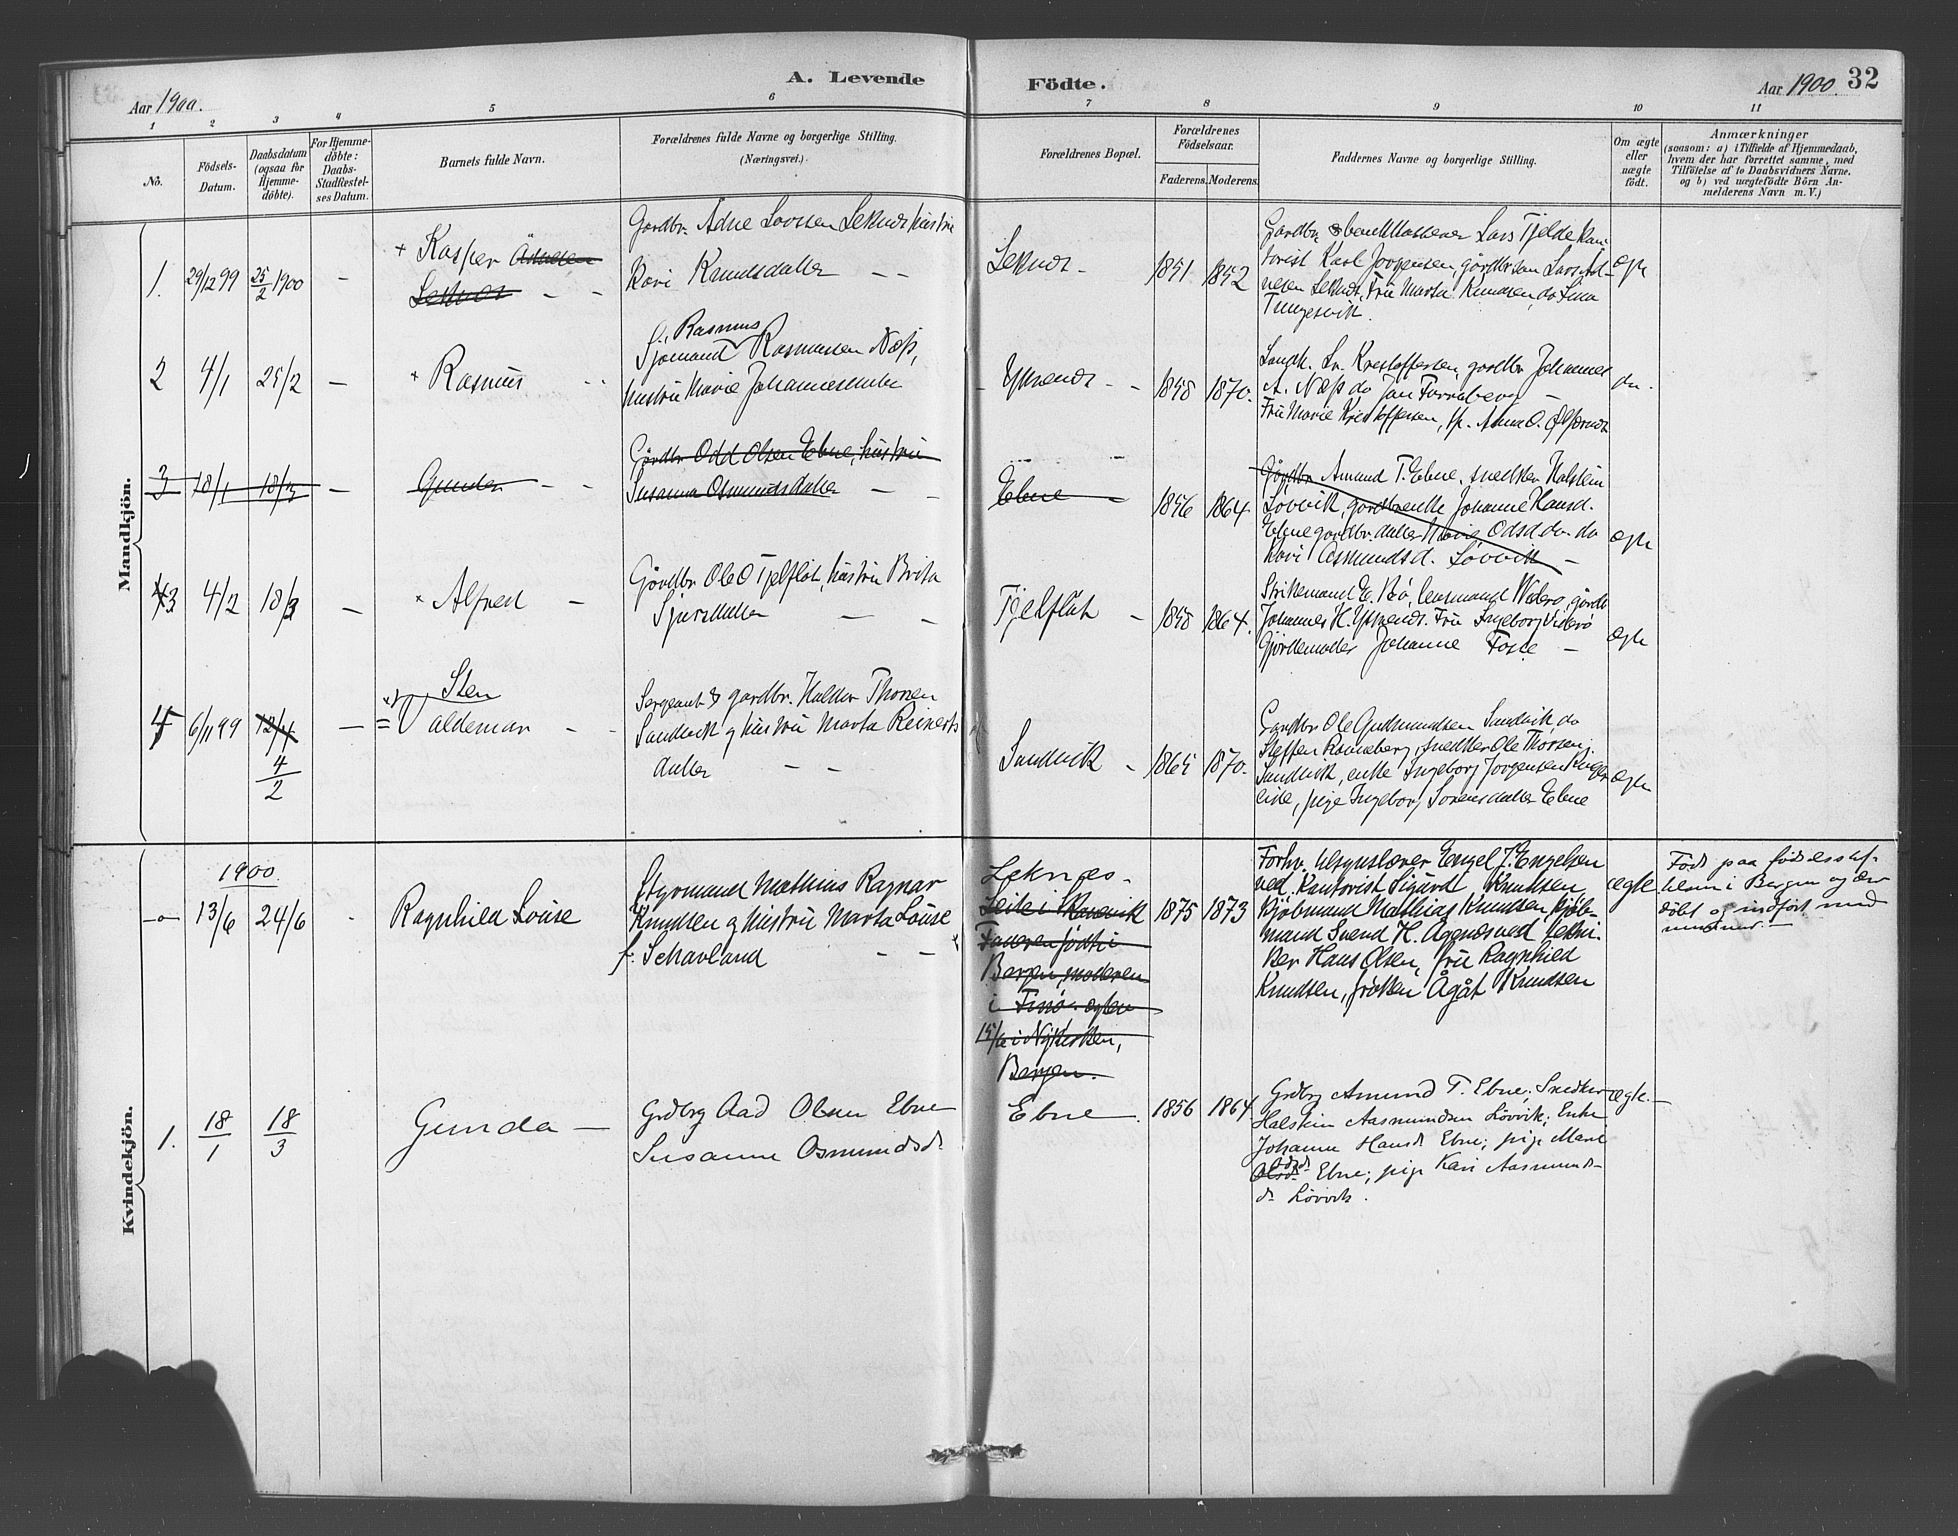 A. Levende
Födte.
Aar 1900.
Aar 1900. 32
1 2 3 4 5 6 7 8 9 10 11
No.
Födsels-
Datum.
Daabsdatum
(ogsaa for
Hjemme-
döbte).
For Hjemme-
döbte:
Daabs-
Stadfæstel-
ses Datum.
Barnets fulde Navn.
Forældrenes fulde Navne og borgerlige Stilling.
(Næringsvei.)
Forældrenes Bopæl.
Forældrenes
Födselsaar.
Faderens. Moderens.
Faddernes Navne og borgerlige Stilling.
Om ægte
eller
uægte
födt.
Anmærkninger
(saasom: a) i Tilfælde af Hjemmedaab,
hvem der har forrettet samme, med
Tilföielse af to Daabsvidners Navne,
og b) ved uægtefödte Börn An-
melderens Navn m. V.)
Mandkjön.
1. 29/12 99 25/2 1900 -
+ Kasper
Leknes - -
Gardbr. Adne Leknes hustru
Kari Knudsdatter - -
Leknes -
1851 1852
Gardbr. Lars Tjelde
Karl Jørgensen, gårdbr.søn Lars
Leknes, Fru Marta Knudsen, do
Tungesvik.
ægte
2 4/1 25/2 -
+ Rasmus
Rasmus
Sjømand Rasmussen Næss,
hustru Marie Johannesdatter
1870.
Krestoffersen, gardbr Johannes
A. Næss do
Fru Marie Kristoffersen, Anna O.
do -
3 18/1 18/3 -
Gunder - -
Gårdbr Odd Olsen Ebne, hustru
Susanna Osmundsdatter - -
Ebne -
1856 1864.
Gårdbr Amund T. Ebne, snedker Halstein
Løvvik, gårdbrenke Johanne Hansd.
Ebne gårdbr.datter Marie Odsd do. do
Kari Asmundsd. Løvvik -
ægte
43 4/2 18/3 -
+ Alfred -
Gårdbr Ole O Tjelflåt, hustru Brita
Sjursdatter - -
Tjelflåt -
1858 1864.
Strikemand E. Bø, lensmand Viderø, gårdb
Johannes H. Fru Ingeborg Viderø
Gjordemoder Johanne Fosse -
ægte
4 6/11 99 12/4 -
4/2
Sten
Valdemar - -
Sergeant & gårdbr. Haldor Thorsen
Sandvik og hustru Marta Reinerts
datter - -
Sandvik -
1865 1870.
Gårdbr Ole Gudmundsen Sandvik, do
Steffen Ronneberg, snedker Ole Thorsen
Sandvik, enke Ingeborg Jørgensen
pige Ingeborg Sørensdatter Ebne
ægte
Kvindekjön.
1900
-o- 13/6 24/6
Ragnhild Louise
Styrmand Mathias Ragnar
Knudsen og hustru Marta Louise
f. Schavland - -
Leknes -
Leite i Skanevik
Faderen født i
Bergen, moderen
i Finø. ægtev
15/6 i Nykirken,
Bergen.
1875 1873
Forhv. tilsynshaver Engel J. Engelsen
ved. Kantorist Sigurd Knudsen
Kjøbmand Mathias Knudsen, Kjøb-
mand Svend H. Aggnæsved tekni-
ker Hans Olsen, fru Ragnhild
Knudsen, frøken Ågåt Knudsen
ægte
Født paa fødselsstif-
telsen i Bergen og der
døbt og indført med
nummer.
1. 18/1 18/3
Gunda -
Grdbrg Aad Olsen Ebne
Susanne Osmundsd.
Ebne.
1856 1864
Grdbrg Amund T. Ebne; Snedker
Halstein Aasmundsen Løvvik; Enke
Johanne Hansd. Ebne; pige Mari
Olsd. Odsd. Ebne; pige Kari Aasmunds-
d. Løvvik.
ægte -